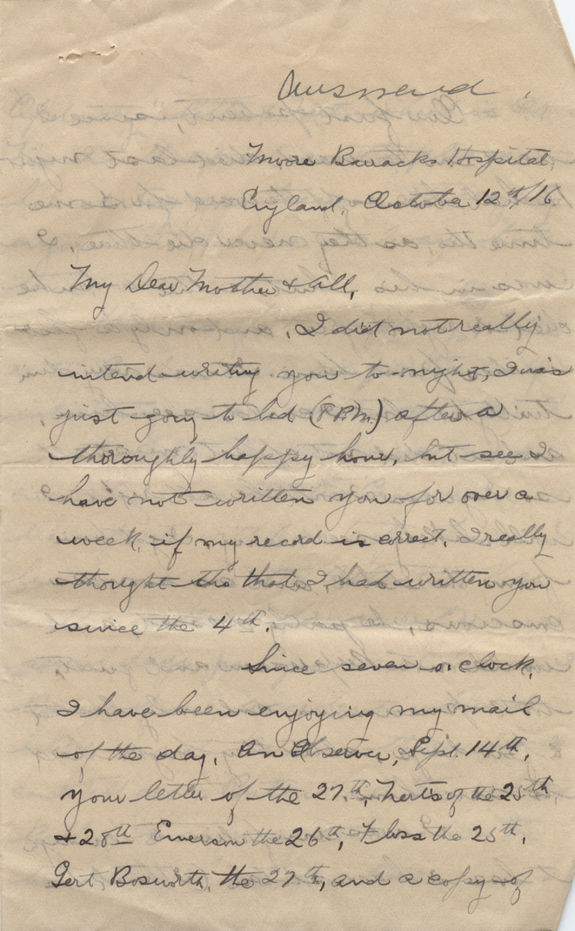 Answered.
Moore Barracks Hospital,
England, October 12th/16.
My Dear Mother & All,
I did not really
intend writing you to-night, I was
just going to bed (8 P.M.) after a
thoroughly happy hour, but see I
have not written you for over a
week, if my record is correct. I really
thought tho that I had written you
since the 4th.
Since seven o'clock,
I have been enjoying my mail
of the day. An Observer, Sept. 14th,
your letter of the 27th, of the 25th
+ 28th Emerson the 26th, Floss the 25th,
Gert. Bosworth, the 27th, and a copy of